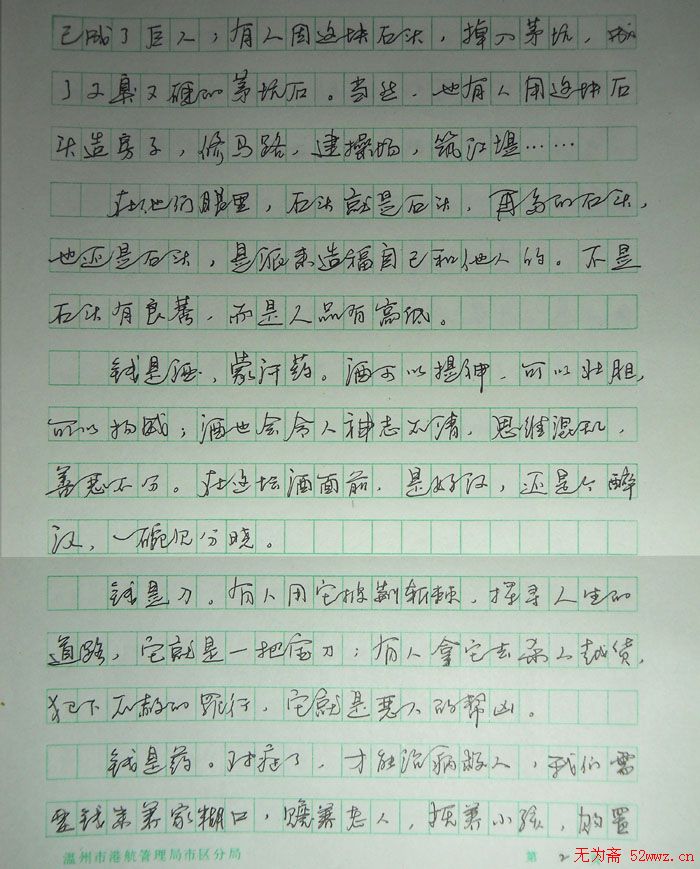 己成了巨人；有人因这块石头，掉入茅坑，成
了又臭又硬的茅坑石。当然，也有人用这块石
头造房子，修马路，建操场，筑江堤……
在他们眼里，石头就是石头，再多的石头，
也还是石头，是派来造福自己和他人的。不是
石头有良莠，而是人品有高低。
钱是酒，蒙汗药。酒可以提神，可以壮胆，
可以扬威；酒也会令人神志不清，思维混乱，
善恶不分。在这坛酒面前，是好汉，还是个醉
汉，一碗见分晓。
钱是刀。有人用它披荆斩棘，探寻人生的
道路，它就是一把宝刀；有人拿它去杀人越货，
犯下不赦的罪行，它就是恶人的帮凶。
钱是药。对症了，才能治病救人，我们需
要钱来养家糊口，赡养老人，抚养小孩，购置
温州市港航管理局市区分局 第 2
无为斋 52wwz.cn